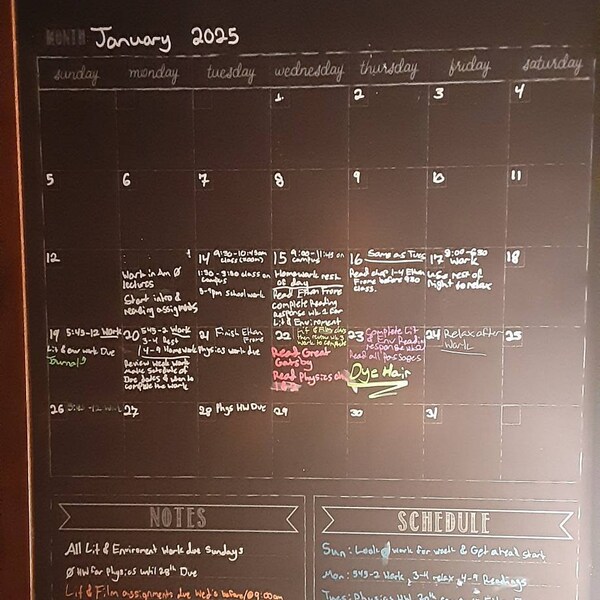 MONTH January 2025
sunday monday tuesday wednesday thursday friday saturday
1 2 3 4
5 6 7 8 9 10 11
12
Work in Am Ø
lectures
Start intro &
reading assignments
14 9:30-10:45am
class (zoom)
1:30 - 3:30 class on
campus
school work
15 9:00-11:45 on
campus
Homework rest
of day
Read Ethan Frome
complete Reading
response wk 2 for
Lit & Enviroment
16 Same as Tues
Read chap 1-4 Ethan
Frome before 930
class.
17
Work
use rest of
night to relax
18
19 5:45-12 Work
Lit & env work Due
Journal
20 545-2 Work
3-4 Rest
4-9 Homework
Review week work
Make Schedule of
Due dates & when to
complete the work
21 Finish Ethan
Frome
Physics work due
22
Read Great
Gatsby
Read Physics
23 Complete Lit
& Env Reading
response wk 3
read all passages
Dye Hair
24 Relax after
Work
25
26
27
28 Phys HW Due
29 30 31
NOTES
All Lit & Enviroment Work due Sundays
Ø HW for Physics until 28th Due
Lit & Film assignments due Wed's before 9:00am
SCHEDULE
Sun: Look @ work for week & Get a head start
Mon: 545-2 Work, 3-4 relax, 4-9 Readings
Tues: Physics HW